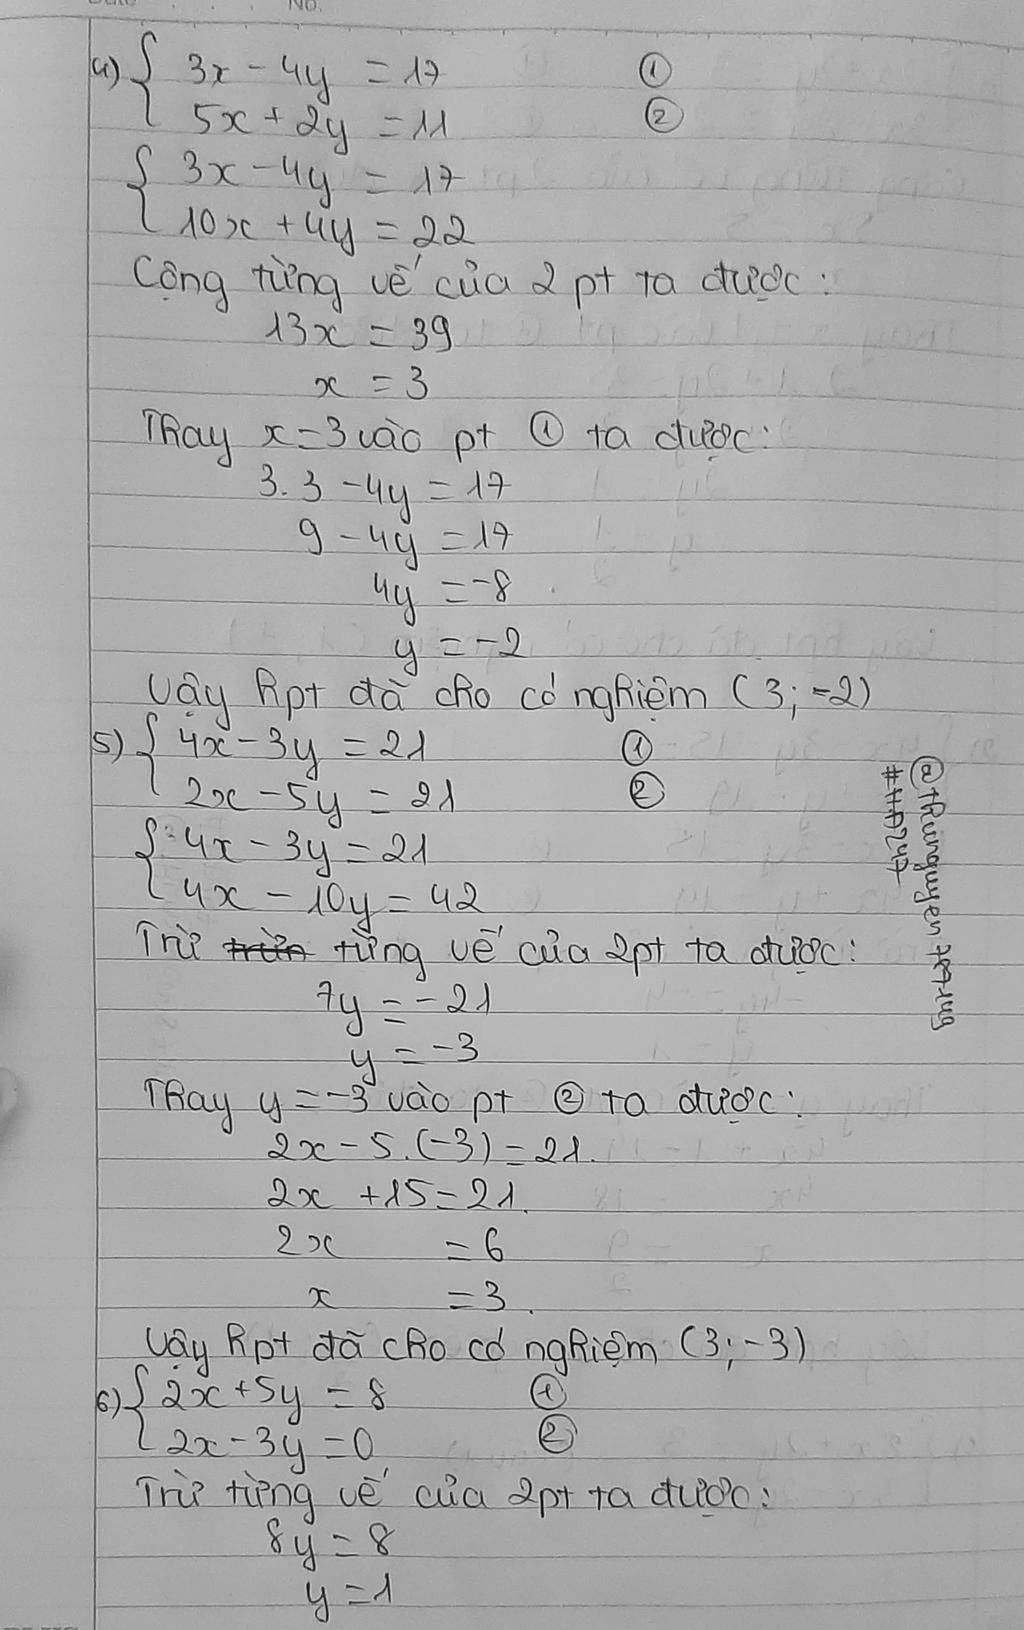 No.
4) { 3x - 4y = 17 ①
5x + 2y = 11 ②
{ 3x - 4y = 17
10x + 4y = 22
Cộng từng vế của 2 pt ta được:
13x = 39
x = 3
Thay x = 3 vào pt ① ta được:
3. 3 - 4y = 17
9 - 4y = 17
4y = -8
y = -2
Vậy hpt đã cho có nghiệm (3; -2)
5) { 4x - 3y = 21 ①
2x - 5y = 21 ②
{ 4x - 3y = 21
4x - 10y = 42
Trừ từng vế của 2pt ta được:
7y = -21
y = -3
Thay y = -3 vào pt ② ta được:
2x - 5.(-3) = 21.
2x + 15 = 21.
2x = 6
x = 3.
Vậy hpt đã cho có nghiệm (3; -3)
6) { 2x + 5y = 8 ①
2x - 3y = 0 ②
Trừ từng vế của 2pt ta được:
8y = 8
y = 1